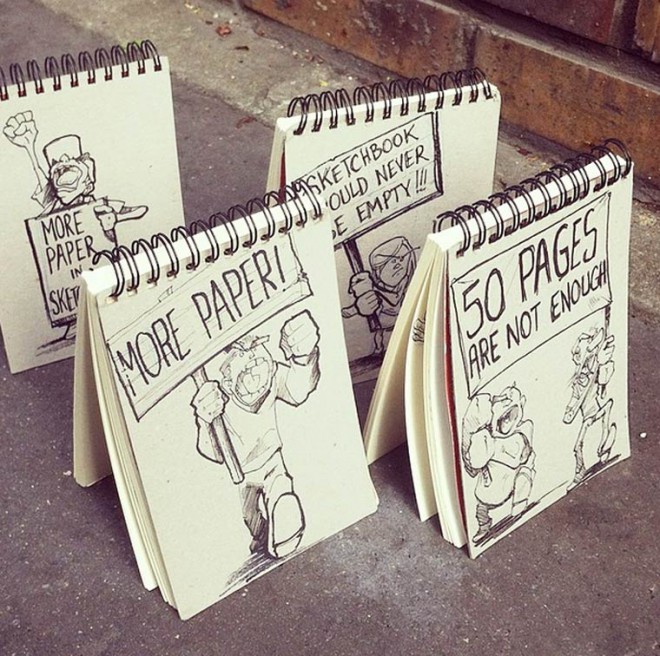 MORE
PAPER
IN
SKET
SKETCHBOOK
OULD NEVER
E EMPTY!!!
¡MORE PAPER!
50 PAGES
ARE NOT ENOUGH